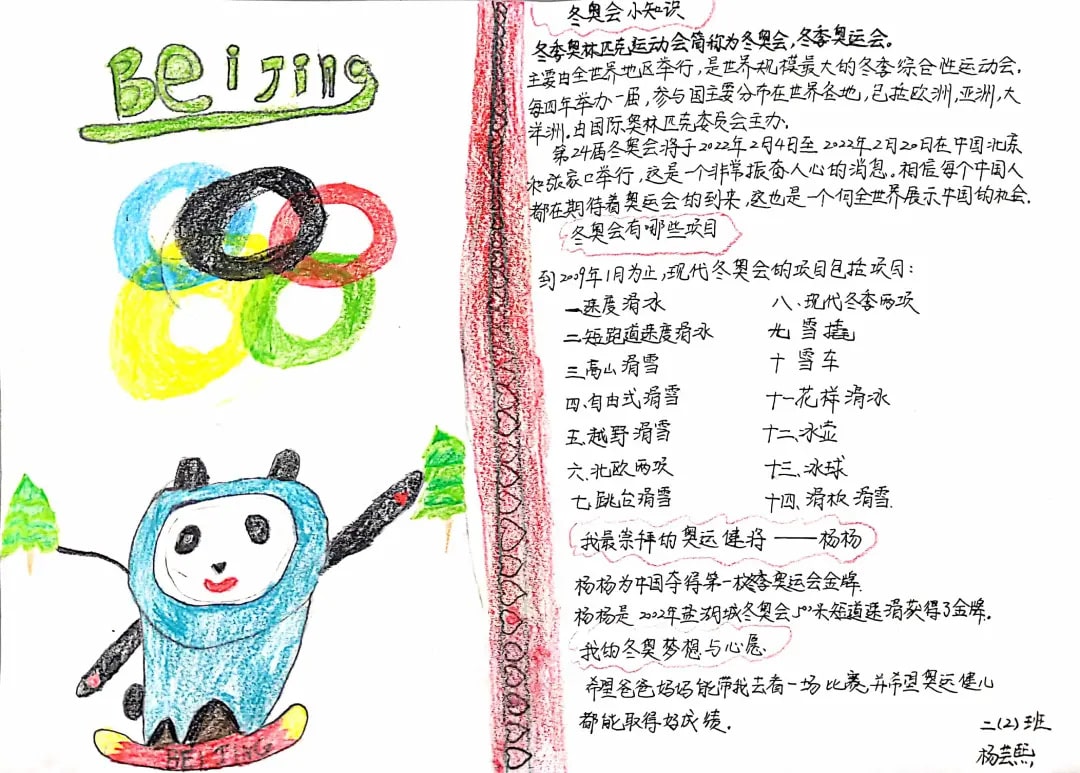 Beijing
BEIJING
冬奥会小知识
冬季奥林匹克运动会简称为冬奥会,冬季奥运会。
主要由全世界地区举行,是世界规模最大的冬季综合性运动会,
每四年举办一届,参与国主要分布在世界各地,已括欧洲,亚洲,大
洋洲.由国际奥林匹克委员会主办.
第24届冬奥会将于2022年2月4日至2022年2月20日在中国北京
和张家口举行,这是一个非常振奋人心的消息。相信每个中国人
都在期待着奥运会的到来,这也是一个向全世界展示中国的机会.
冬奥会有哪些项目
到2009年1月为止,现代冬奥会的项目包括项目:
一速度滑冰
二短跑道速度滑冰
三高山滑雪
四.自由式滑雪
五.越野滑雪
六.北欧两项
七.跳台滑雪
八、现代冬季两项
九 雪撬
十 雪车
十一花样滑冰
十二、冰壶
十三、冰球
十四、滑板滑雪.
我最崇拜的奥运健将——杨杨
杨杨为中国夺得第一枚冬季奥运会金牌.
杨杨是2002年盐湖城冬奥会500米短道速滑获得了金牌.
我的冬奥梦想与心愿.
希望爸爸妈妈能带我去看一场比赛,并希望奥运健儿
都能取得好成绩。
二(2)班
杨芸熙